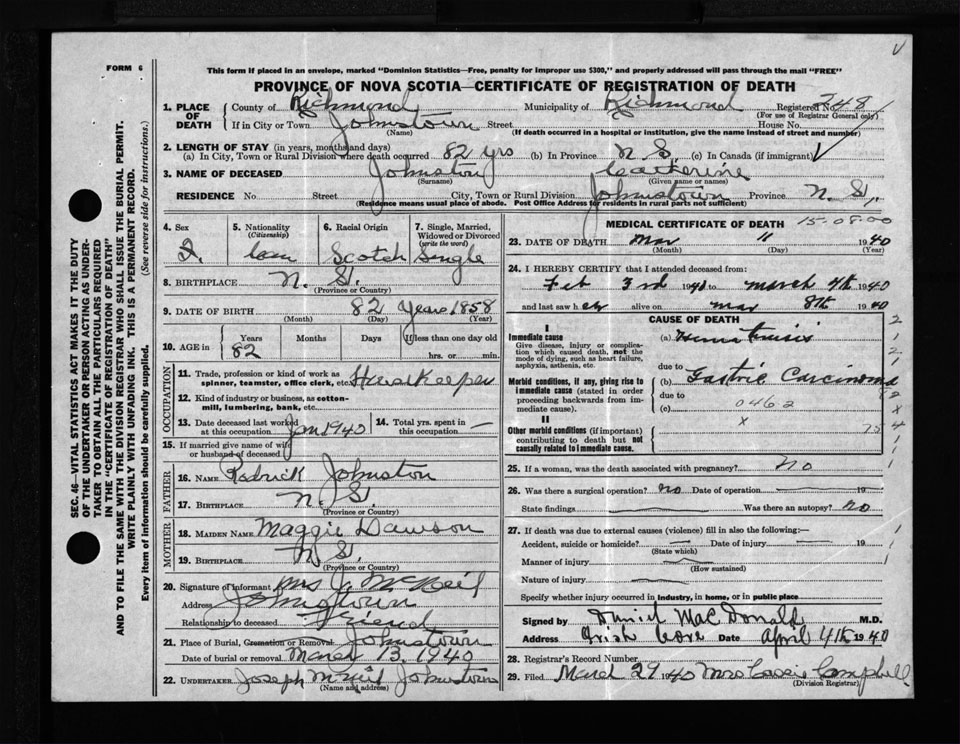 FORM 6
This form if placed in an envelope, marked "Dominion Statistics—Free, penalty for improper use $300," and properly addressed will pass through the mail "FREE"
PROVINCE OF NOVA SCOTIA—CERTIFICATE OF REGISTRATION OF DEATH
1. PLACE OF DEATH County of Richmond Municipality of Richmond Registered No. 248
(For use of Registrar General only)
If in City or Town Johnstown Street House No.
(Name) (If death occurred in a hospital or institution, give the name instead of street and number)
2. LENGTH OF STAY (in years, months and days)
(a) In City, Town or Rural Division where death occurred 82 yrs (b) In Province N.S. (c) In Canada (if immigrant)
3. NAME OF DECEASED Johnston Catherine
(Surname) (Given name or names)
RESIDENCE No. Street City, Town or Rural Division Johnstown Province N.S.
(Residence means usual place of abode. Post Office Address for residents in rural parts not sufficient)
4. Sex 5. Nationality (Citizenship) 6. Racial Origin 7. Single, Married, Widowed or Divorced (write the word)
Can Scotch Single
8. BIRTHPLACE N.S.
(Province or Country)
9. DATE OF BIRTH 82 Years 1858
(Month) (Day) (Year)
10. AGE in Years Months Days If less than one day old
82 hrs. or min.
OCCUPATION
11. Trade, profession or kind of work as spinner, teamster, office clerk, etc. Housekeeper
12. Kind of industry or business, as cotton-mill, lumbering, bank, etc.
13. Date deceased last worked at this occupation Jan 1940 14. Total yrs. spent in this occupation —
15. If married give name of wife or husband of deceased
FATHER
16. NAME Rodrick Johnston
17. BIRTHPLACE N.S.
(Province or Country)
MOTHER
18. MAIDEN NAME Maggie Dawson
19. BIRTHPLACE N.S.
(Province or Country)
20. Signature of informant Mrs J. McNeil
Address Johnstown
Relationship to deceased Friend
21. Place of Burial, Cremation or Removal Johnstown
Date of burial or removal March 13, 1940
22. UNDERTAKER Joseph McNeil Johnstown
(Name and address)
MEDICAL CERTIFICATE OF DEATH 15-08-00
23. DATE OF DEATH Mar 11 1940
(Month) (Day)
24. I HEREBY CERTIFY that I attended deceased from:
Feb 3rd 1940 to March 4th 1940
and last saw her alive on Mar 8th 1940
CAUSE OF DEATH
I
Immediate cause
Give disease, injury or complication which caused death, not the mode of dying, such as heart failure, asphyxia, asthenia, etc.
(a)
due to
Morbid conditions, if any, giving rise to immediate cause (stated in order proceeding backwards from immediate cause).
(b) Gastric Carcinoma
due to
(c) 046 2
II
Other morbid conditions (if important) contributing to death but not causally related to immediate cause.
x
25. If a woman, was the death associated with pregnancy? No
26. Was there a surgical operation? No Date of operation — 19
State findings Was there an autopsy? No
27. If death was due to external causes (violence) fill in also the following:—
Accident, suicide or homicide? — Date of injury — 19
(State which)
Manner of injury
(How sustained)
Nature of injury
Specify whether injury occurred in industry, in home, or in public place
Signed by Daniel MacDonald M.D.
Address Irish Cove Date April 4th 1940
28. Registrar's Record Number
29. Filed March 29 1940 Mrs Cassie Campbell
(Division Registrar)
SEC. 46—VITAL STATISTICS ACT MAKES IT THE DUTY
OF THE UNDERTAKER OR PERSON ACTING AS UNDERTAKER TO OBTAIN ALL THE PARTICULARS REQUIRED
IN THE "CERTIFICATE OF REGISTRATION OF DEATH"
AND TO FILE THE SAME WITH THE DIVISION REGISTRAR WHO SHALL ISSUE THE BURIAL PERMIT.
WRITE PLAINLY WITH UNFADING INK. THIS IS A PERMANENT RECORD.
Every item of information should be carefully supplied. (See reverse side for instructions.)